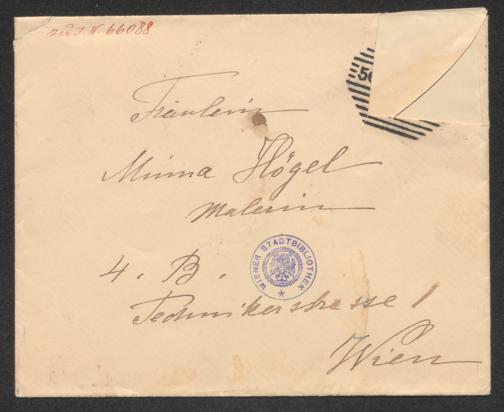 zu I.N. 66088
50
Fräulein
Minna Högel
Malerin
WIENER STADTBIBLIOTHEK
4. B.
Technikerstrasse 1
Wien